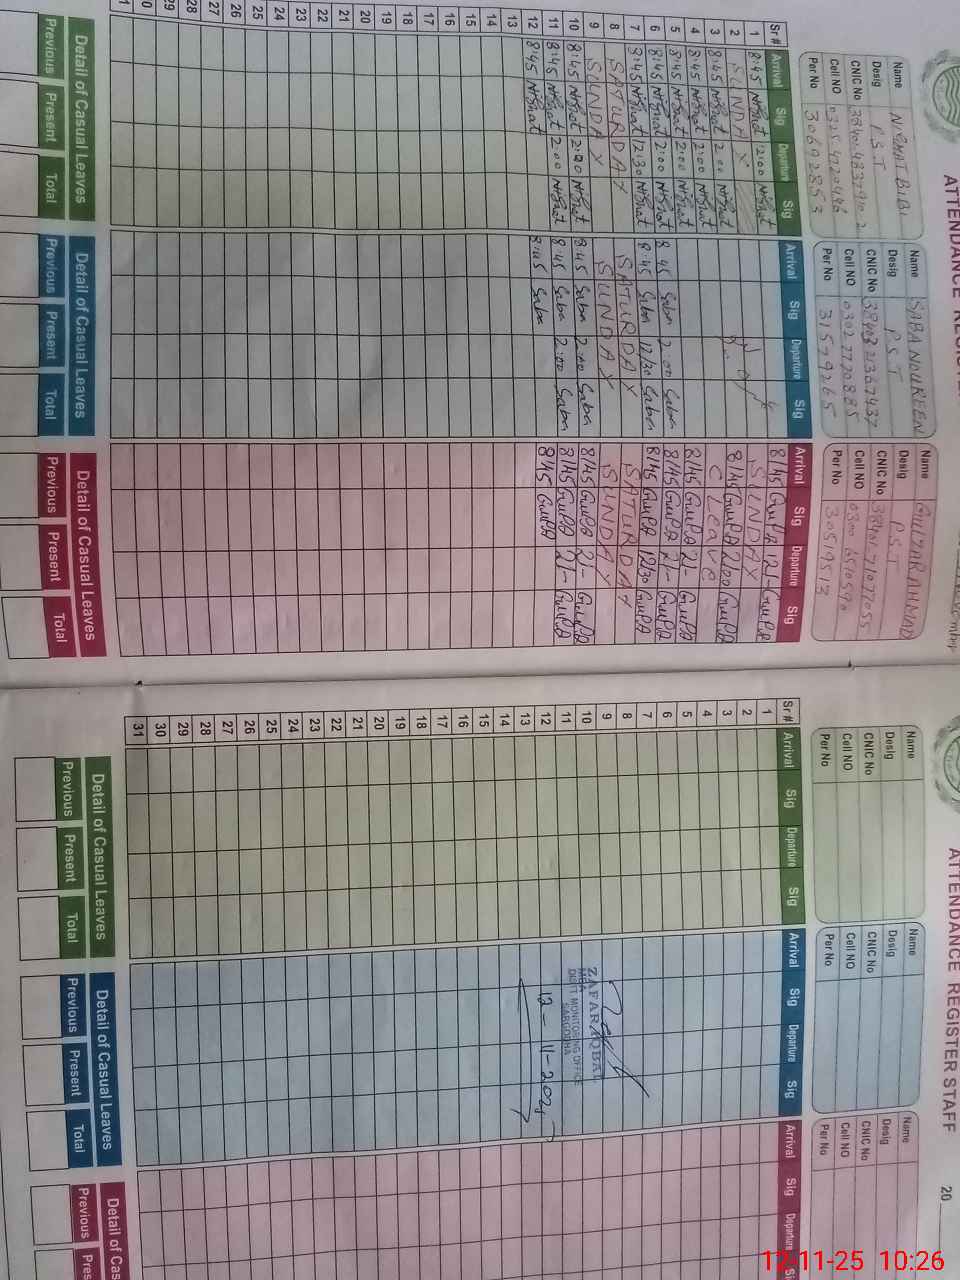 ATTENDANCE REGISTER
Name NISHAT BIBI
Desig P.S.T
CNIC No
Cell NO
Per No 30692853
Name SABA NOUREEN
Desig P.S.T
CNIC No 38403 2367437
Cell NO 0302 7720885
Per No 31579265
Name GULZAR AHMAD
Desig P.S.T
CNIC No 38401 71077055
Cell NO
Per No 30519513
Sr# Arrival Sig Departure Sig Arrival Sig Departure Sig Arrival Sig Departure Sig
1 8:45 Nishat 12:00 Nishat 8/45 12/-
2 SUNDAY SUNDAY
3 8:45 Nishat 2:00 Nishat 8/45 2/00
4 8:45 Nishat 2:00 Nishat C Leave
5 8:45 Nishat 2:00 Nishat 8/45 2/-
6 8:45 Nishat 2:00 Nishat 8:45 Saba 2:00 Saba 8/45 2/-
7 8:45 Nishat 12:30 Nishat 8:45 Saba 12/30 Saba 8/45 12/30
8 SATURDAY SATURDAY SATURDAY
9 SUNDAY SUNDAY SUNDAY
10 8:45 Nishat 2:00 Nishat 8:45 Saba 2:00 Saba 8/45 2/-
11 8:45 Nishat 2:00 Nishat 8:45 Saba 2:00 Saba 8/45 2/-
12 8:45 Nishat 8:45 Saba 8/45
13
14
15
16
17
18
19
20
21
22
23
24
25
26
27
28
29
Detail of Casual Leaves Detail of Casual Leaves Detail of Casual Leaves
Previous Present Total Previous Present Total Previous Present Total
ATTENDANCE REGISTER STAFF 20
Name Name Name
Desig Desig Desig
CNIC No CNIC No CNIC No
Cell NO Cell NO Cell NO
Per No Per No Per No
Sr# Arrival Sig Departure Sig Arrival Sig Departure Sig Arrival Sig Departure
1
2
3
4
5
6
7
8
9
10
11
12
13
14
15
16
17
18
19
20
21
22
23
24
25
26
27
28
29
30
31
ZAFAR IQBAL
MEA
DISTT MONITORING OFFICE
SARGODHA
12-11-2025
Detail of Casual Leaves Detail of Casual Leaves Detail of Cas
Previous Present Total Previous Present Total Previous Pres
12-11-25 10:26